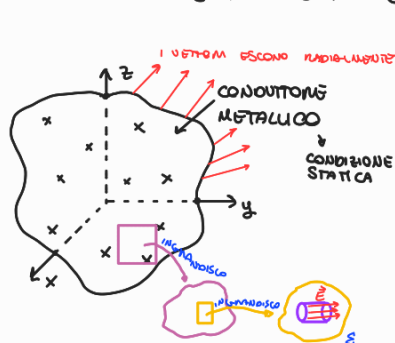 I VETTORI ESCONO RADIALMENTE
z
CONDUTTORE
METALLICO
CONDIZIONE
STATICA
y
x
INGRANDISCO
INGRANDISCO
E